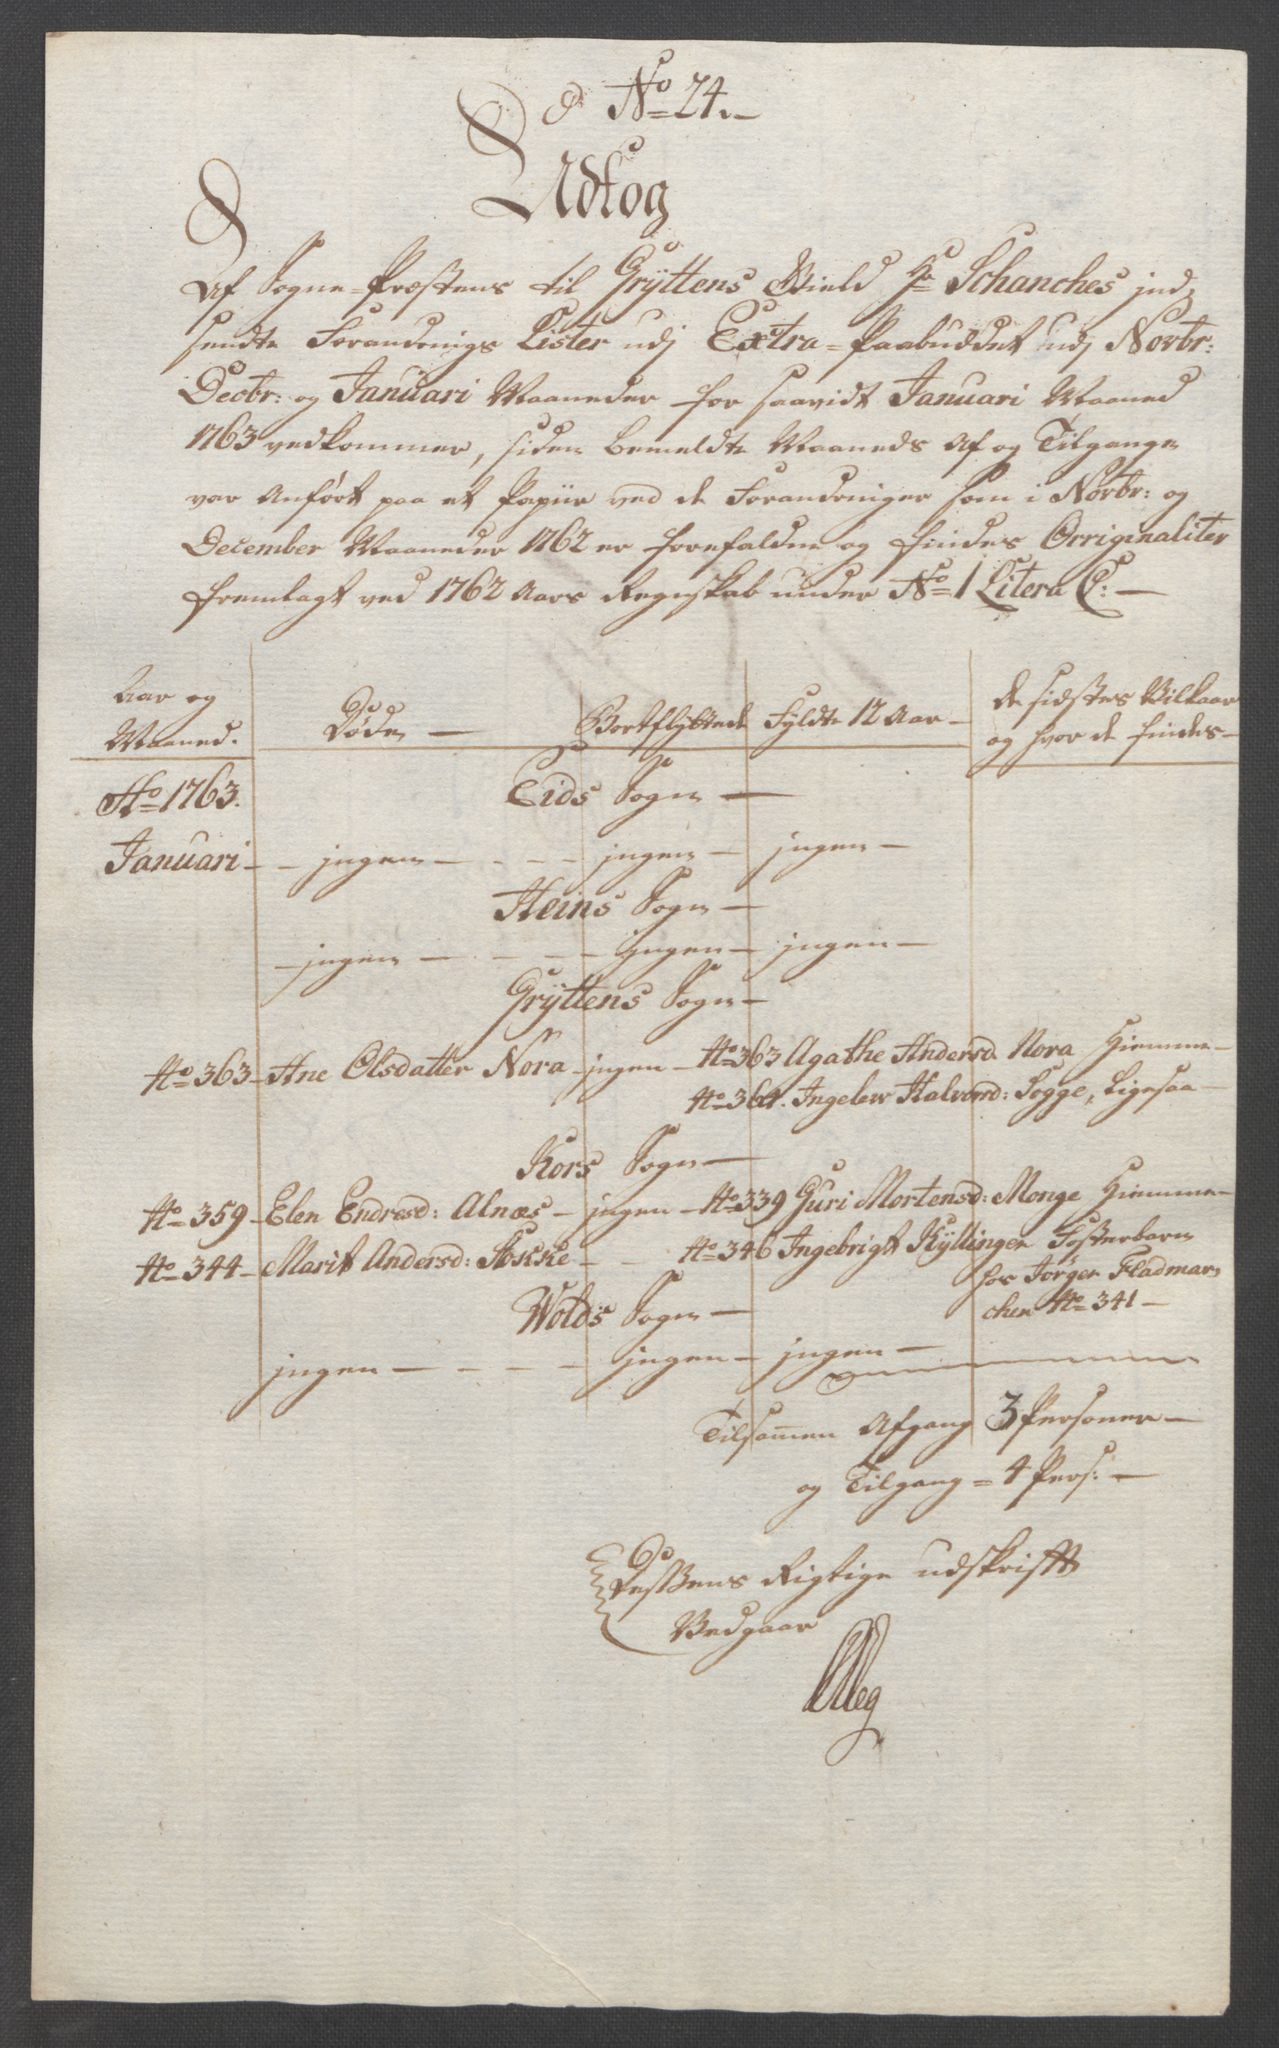 No 24.
Udtog
Af Sogne-Præstens til Gryttens Gield Hr Schanches jnd-
sendte Forandrings Lister udj Extra-Paabuddet udj Novbr:
Decbr: og Januari Maaneder for saavidt Januari Maaned
1763 vedkommer, siden bemeldte Maaneds Af og Tilgange
var Anført paa et Papiir ved de Forandringer som i Novbr: og
December Maaneder 1762 er forefaldne og findes Orriginaliter
fremlagt ved 1762 Aars Regnskab under No 1 Litera C:
Aar og Maaned. Døde Bortflyttede Fyldte 12 Aar de sidstes Vilkaar og hvor de findes
Ao 1763. Eids Sogn
Januari jngen jngen jngen
Heins Sogn
jngen jngen jngen
Gryttens Sogn
No 363 Ane Olsdatter Nora jngen No 363 Agathe Andersd Nora Hiemme
No 364. Ingelew Halvord: Sogge, Ligesaa
Kors Sogn
No 359 Elen Endresd: Alnæs jngen No 339 Guri Mortensd: Monge Hiemme
No 344 Marit Andersd: Stokke No 346 Ingebrigt Kyllingen Fosterbarn
hos Jørgen Fladmar
chen No 341
Wolds Sogn
jngen jngen jngen
Tilsammen Afgang 3 Personer
og Tilgang = 4 Pers:
Desßens Rigtige udskrifft
Vedgaar